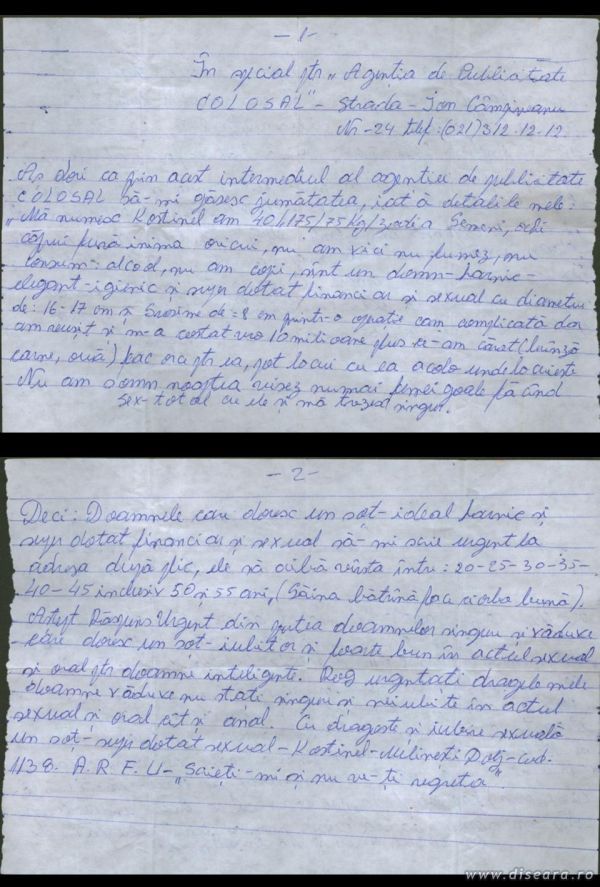 - 1 -
În special ptr „Agenția de Publicitate
COLOSAL" - Strada - Ion Câmpineanu
Nr - 24 telef: (021) 312.12.12
Aș dori ca prin acest intermediul al agentiei de publicitate
COLOSAL Să-mi găsesc jumătatea, iată detaliile mele:
„Mă numesc Kostinel am 40
căprui fură inima oricui, nu am vicii nu fumez, nu
consum: alcool, nu am copii, sînt un domn-harnic-
elegant-igienic și super dotat financiar și sexual cu diametru
de: 16-17 cm și Grosime de = 8 cm printr-o operatie cam complicată dar
am reușit și m-a costat vreo 10 milioane plus ce-am cărat (brînză
carne, ouă) fac orice ptr ea, pot locui cu ea acolo unde locuiește
Nu am somn noaptea visez numai femei goale făcînd
sex-total cu ele și mă trezesc singur.
- 2 -
Deci: Doamnele care doresc un soț-ideal harnic și
super dotat financiar și sexual să-mi scrie urgent la
adresa după plic, ele să aibă vîrsta între: 20-25-30-35-
40-45 inclusiv 50 și 55 ani, (Găina bătrînă face ciorba bună).
Aștept Răspuns Urgent din partea doamnelor singure și văduve
care doresc un soț-iubitor și foarte bun în actul sexual
și oral ptr doamne inteligente. Rog urgentați dragele mele
doamne văduve nu stați singure și neiubite în actul
sexual și oral cît și anal. Cu dragoste și iubire sexuală
un soț-super dotat sexual-Kostinel-Milinești Dolj-cod.
1138. A.R.F.U- „Scrieți-mi și nu ve-ți regreta".
www.diseara.ro